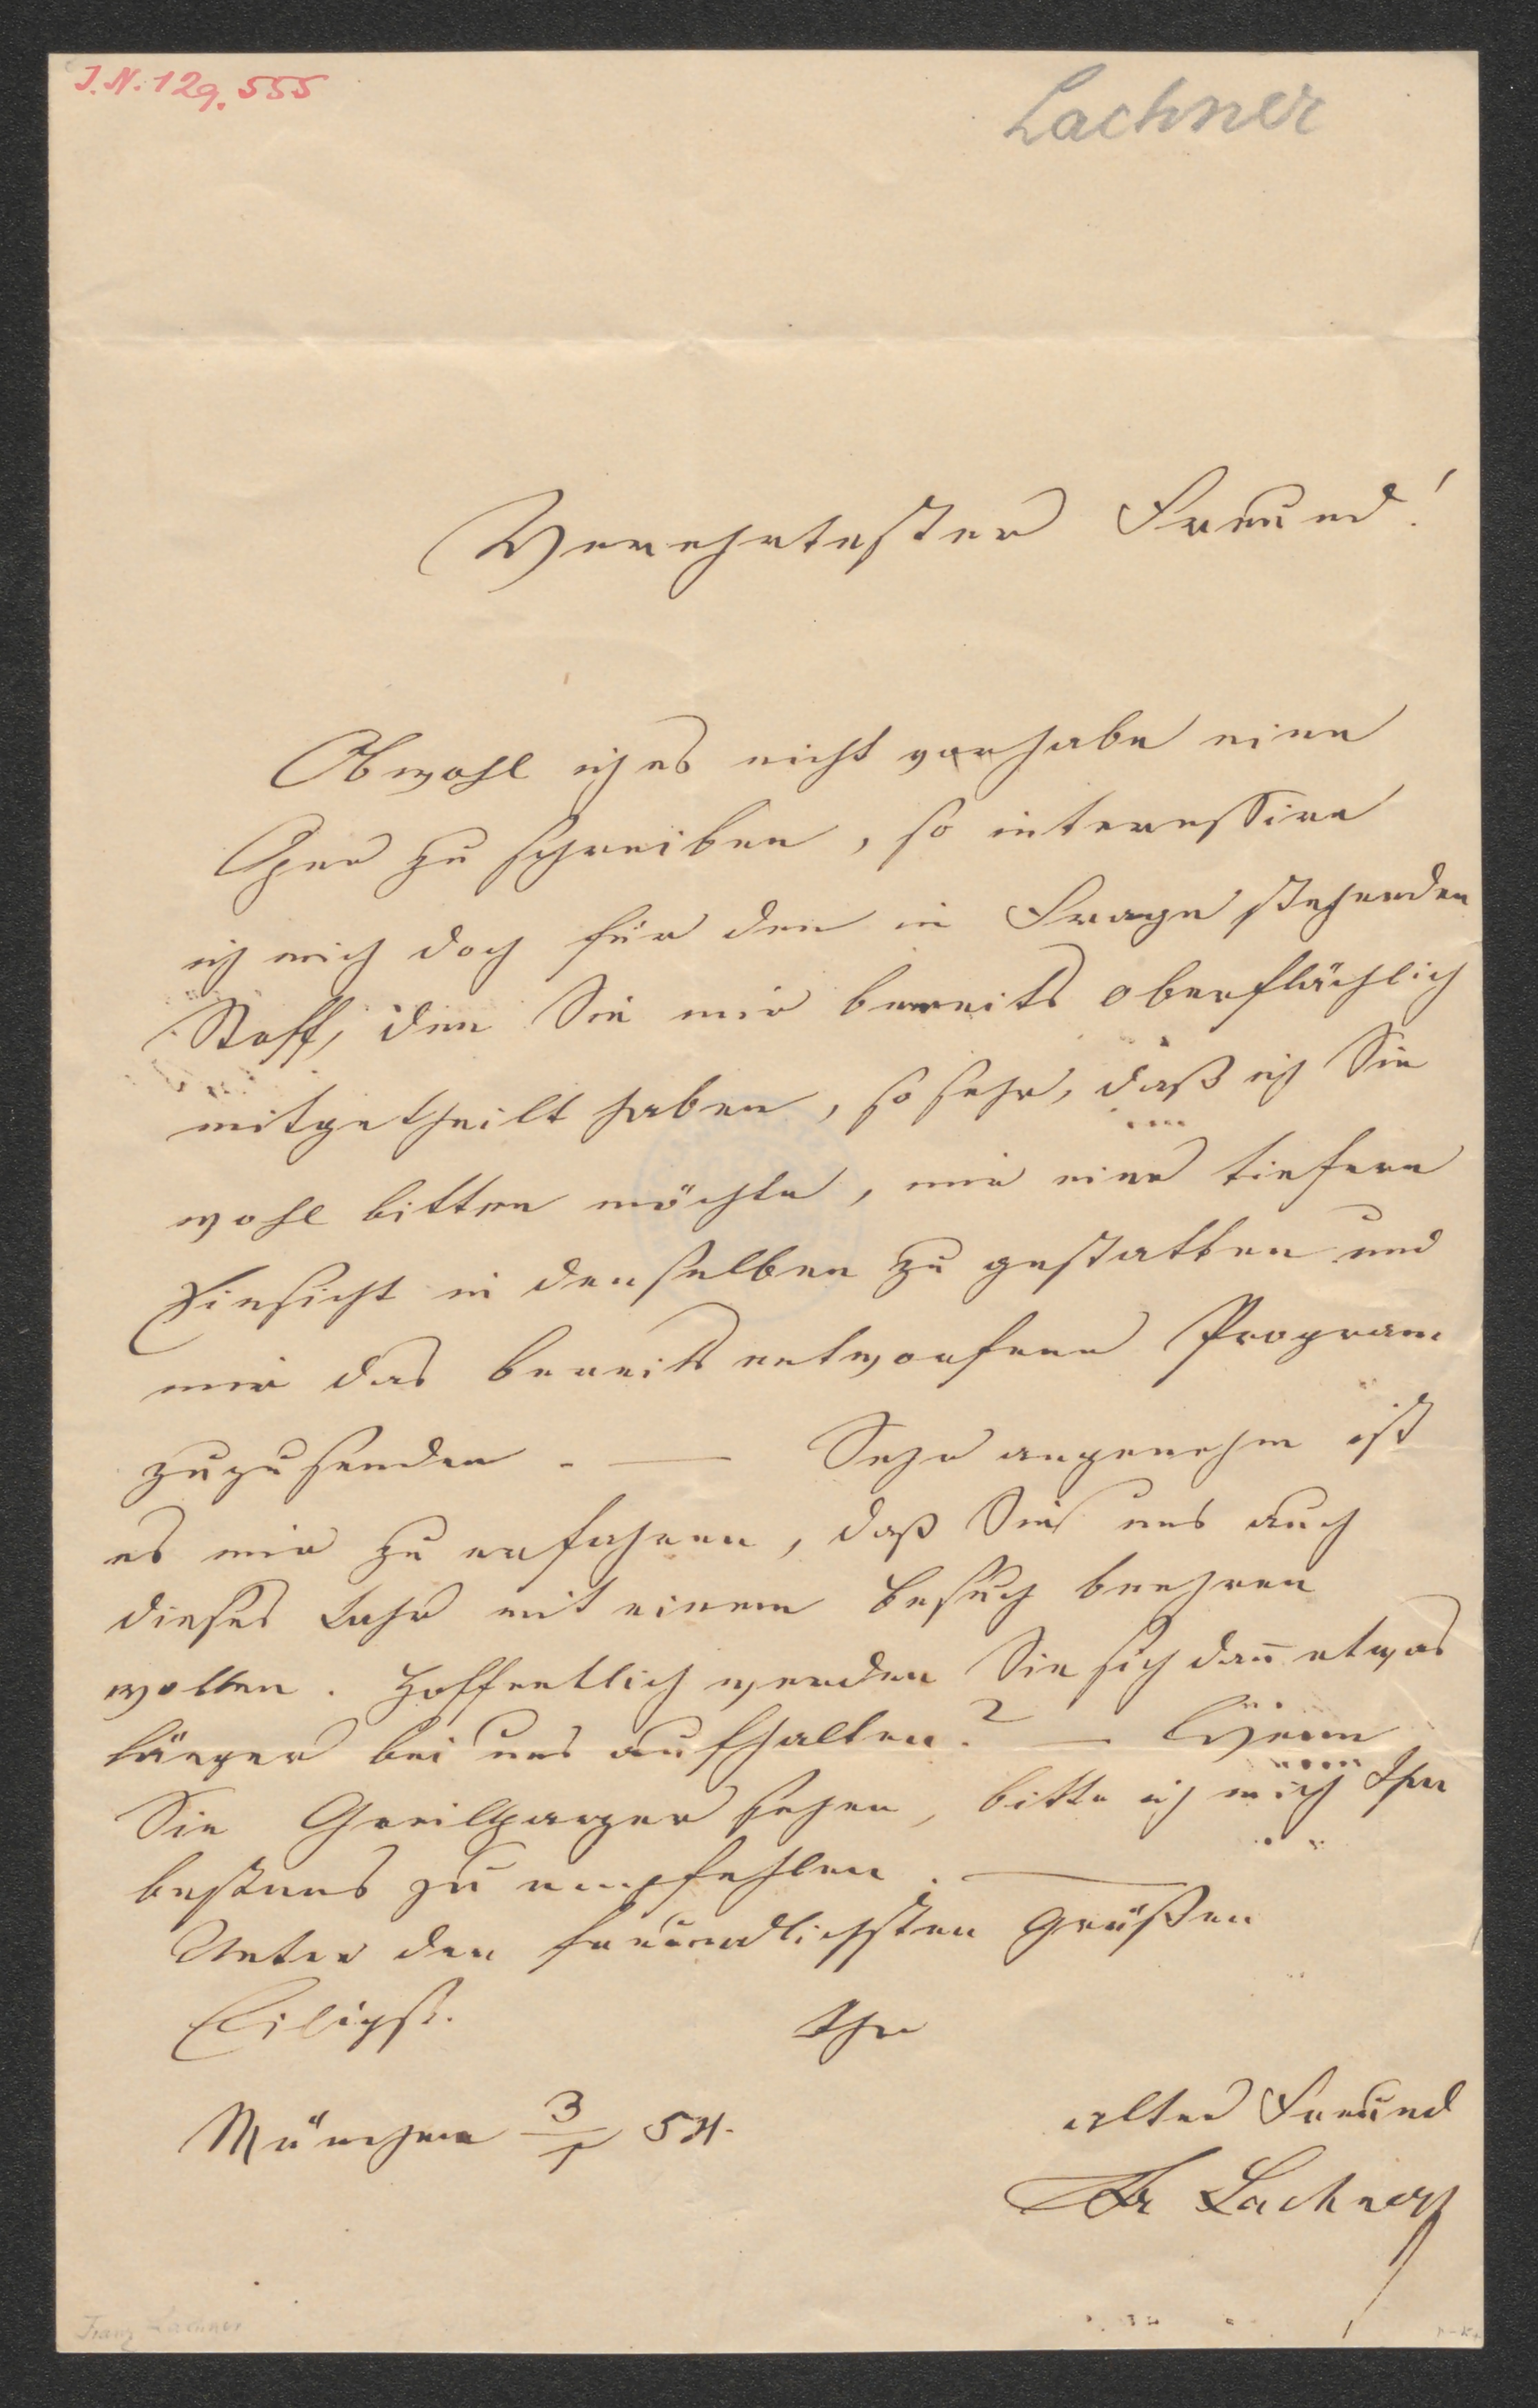 J.N. 129.555
Lachner
Verehrtester Freund!
Obwohl ich es nicht vorhabe eine
Oper zu schreiben, so interessire
ich mich doch für den in Frage stehenden
Stoff, den Sie mir bereits oberflächlich
mitgetheilt haben, so sehr, daß ich Sie
wohl bitten möchte, mir eine tiefere
Einsicht in denselben zu gestatten und
mir das bereits entworfene Program
zuzusenden. — Sehr angenehm ist
es mir zu erfahren, daß Sie uns auch
dieses Jahr mit einem Besuch beehren
wollen. Hoffentlich werden Sie sich dan̄ etwas
länger bei uns aufhalten? — Wenn
Sie Greilparzer sehen, bitte ich mich Ihm
bestens zu empfehlen. —
Unter den freundlichsten Grüßen
Eiligst. Ihr
München 3/1 54.
alter Freund
Fr Lachner
Franz Lachner